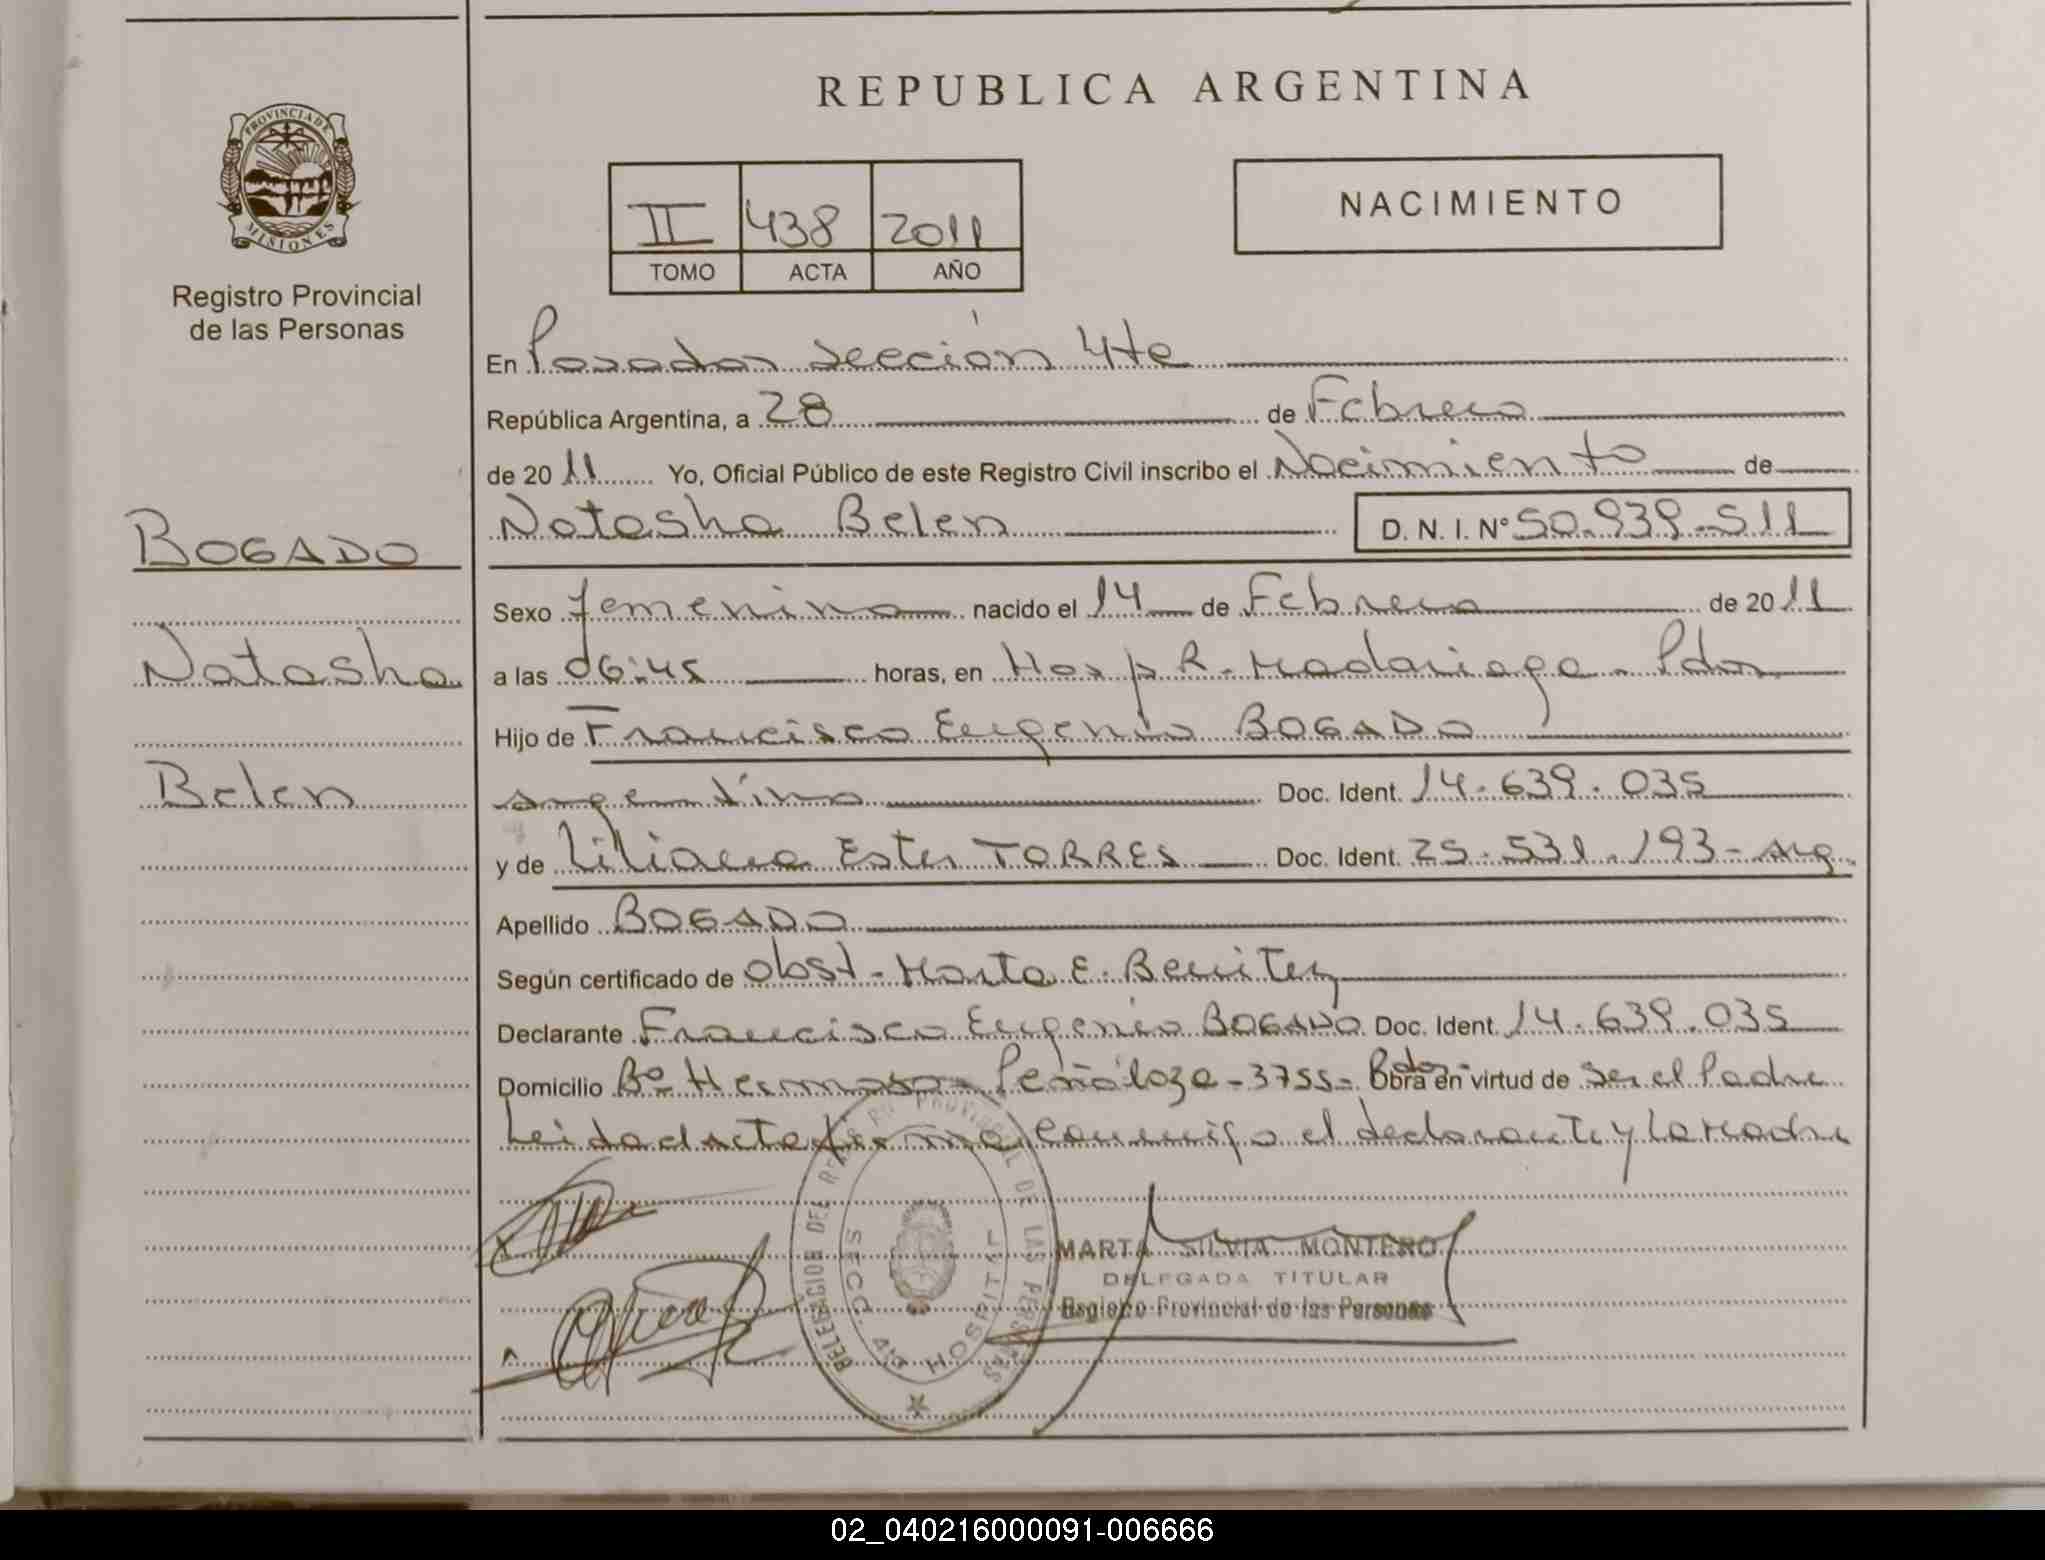 PROVINCIA DE
MISIONES
Registro Provincial
de las Personas
BOGADO
Natasha
Belen
REPUBLICA ARGENTINA
II 438 2011
TOMO ACTA AÑO
NACIMIENTO
En Posadas sección 4ta
República Argentina, a 28 de Febrero
de 20 11 Yo, Oficial Público de este Registro Civil inscribo el Nacimiento de
Natasha Belen D. N. I. N° 50.939.511
Sexo femenino nacido el 14 de Febrero de 20 11
a las 06:45 horas, en Hosp R. Madariaga - Pdas
Hijo de Francisco Eugenio BOGADO
argentino Doc. Ident. 14.639.035
y de Liliana Ester TORRES Doc. Ident. 25.531.193 - arg.
Apellido BOGADO
Según certificado de obst. Marta E. Benitez
Declarante Francisco Eugenio BOGADO Doc. Ident. 14.639.035
Domicilio B° Hermoso - Peñaloza - 3755 - Pdas - Obra en virtud de ser el Padre
Leida el acta firma conmigo el declarante y la Madre
DELEGACION DEL REGISTRO PROVINCIAL DE LAS PERSONAS
SECC. 4ta HOSPITAL
MARTA SILVIA MONTERO
DELEGADA TITULAR
Registro Provincial de las Personas
02_040216000091-006666